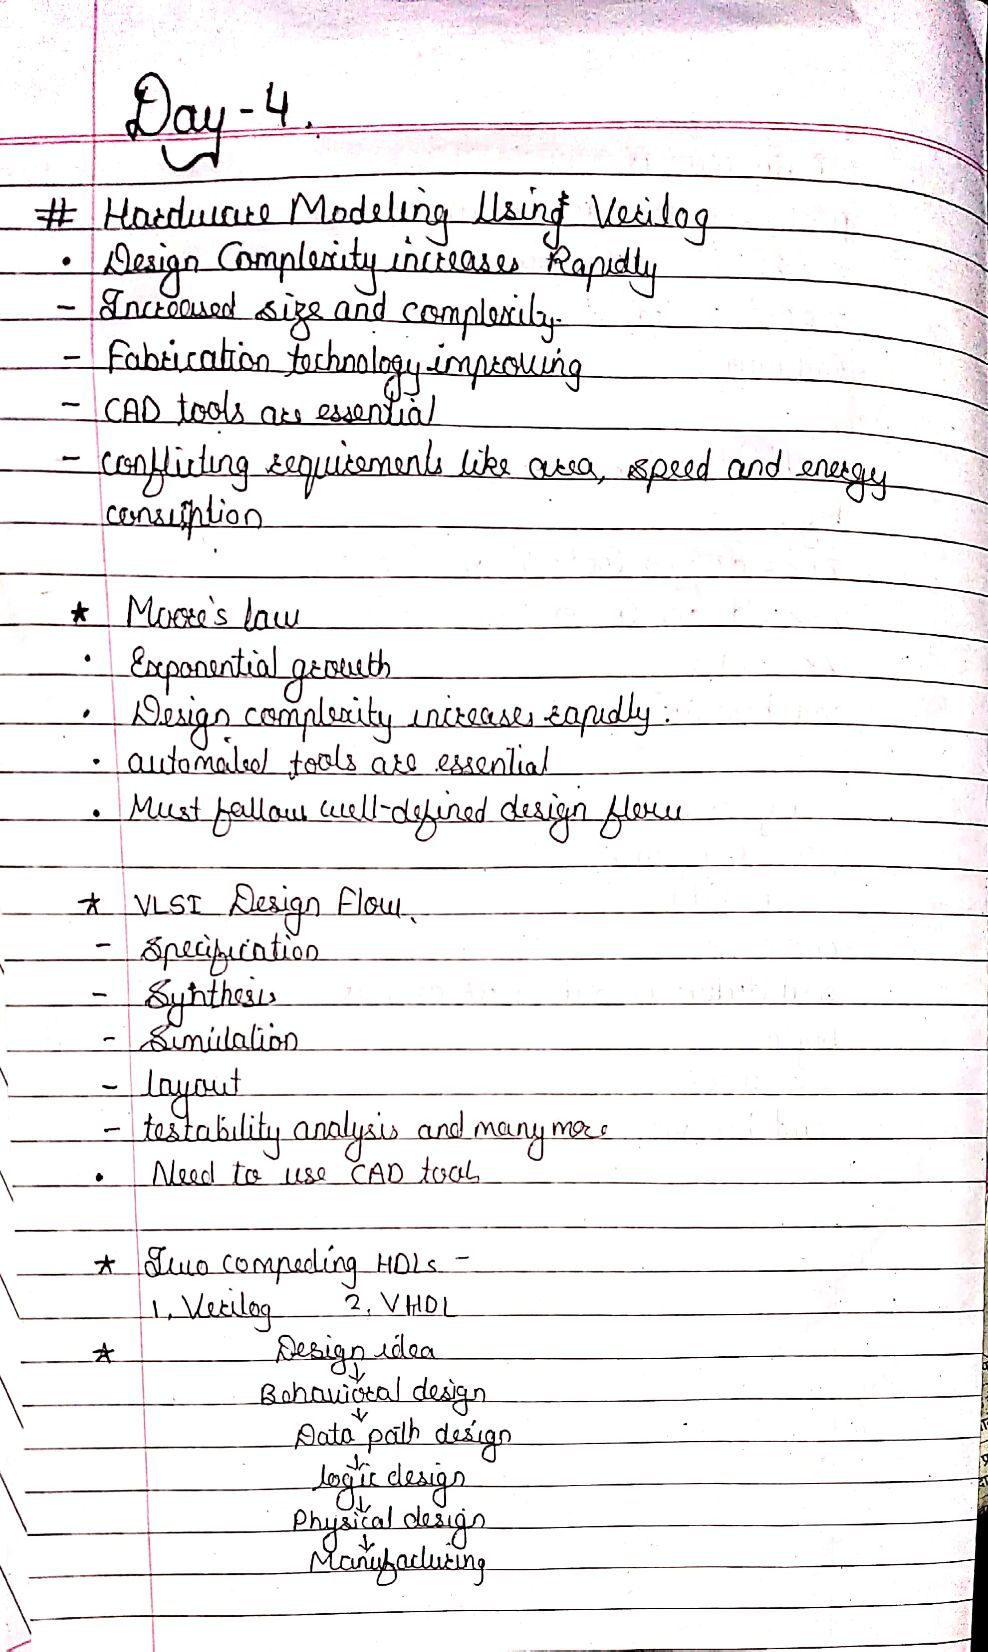 Day-4.
# Hardware Modeling Using Verilog
• Design Complexity increases Rapidly
- Increased size and complexity.
- Fabrication technology improving
- CAD tools are essential
- conflicting requirements like area, speed and energy
consuption
★ Moore's law
• Exponential growth
• Design complexity increases rapidly.
• automated tools are essential
• Must follow well-defined design flow
★ VLSI Design Flow.
- Specification
- Synthesis
- Simulation
- layout
- testability analysis and many more
• Need to use CAD tools
★ Two compeding HDLs -
1. Verilog 2. VHDL
★ Design idea
↓
Behavioral design
↓
Data path design
↓
logic design
↓
Physical design
↓
Manufacturing